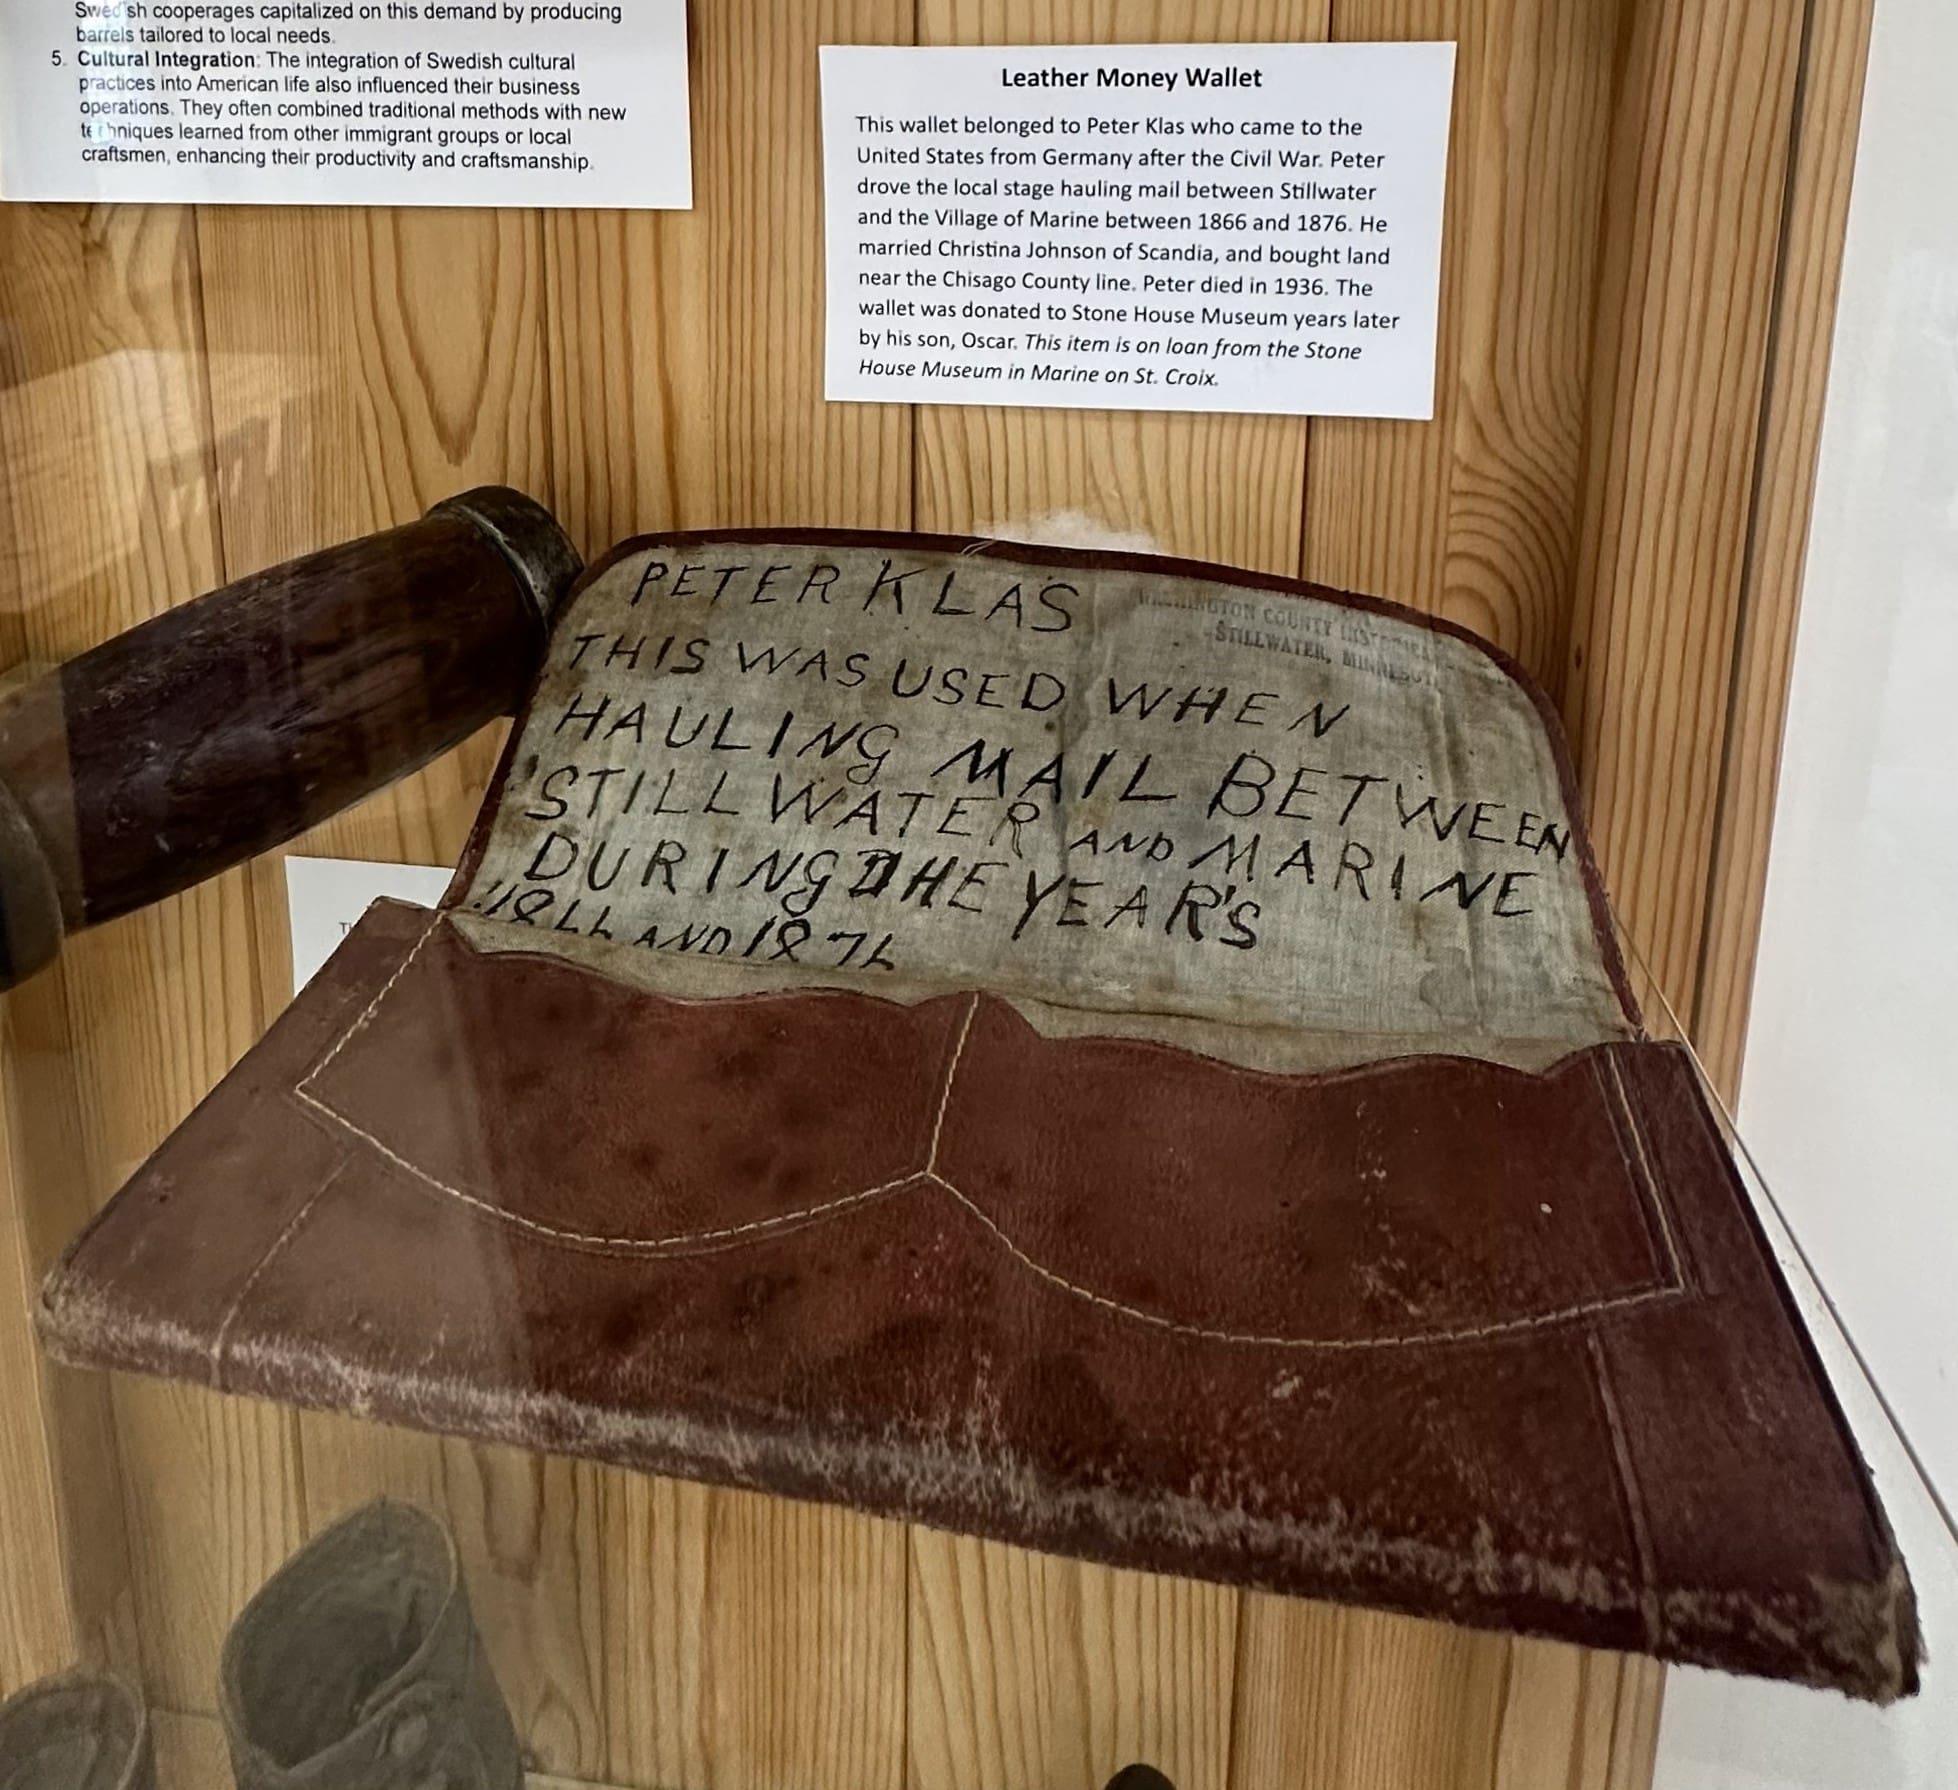 Swedish cooperages capitalized on this demand by producing
barrels tailored to local needs.
5. Cultural Integration: The integration of Swedish cultural
practices into American life also influenced their business
operations. They often combined traditional methods with new
techniques learned from other immigrant groups or local
craftsmen, enhancing their productivity and craftsmanship.
Leather Money Wallet
This wallet belonged to Peter Klas who came to the
United States from Germany after the Civil War. Peter
drove the local stage hauling mail between Stillwater
and the Village of Marine between 1866 and 1876. He
married Christina Johnson of Scandia, and bought land
near the Chisago County line. Peter died in 1936. The
wallet was donated to Stone House Museum years later
by his son, Oscar. This item is on loan from the Stone
House Museum in Marine on St. Croix.
PETER KLAS
THIS WAS USED WHEN
HAULING MAIL BETWEEN
STILLWATER AND MARINE
DURING THE YEAR'S
1866 AND 1876
WASHINGTON COUNTY
STILLWATER,